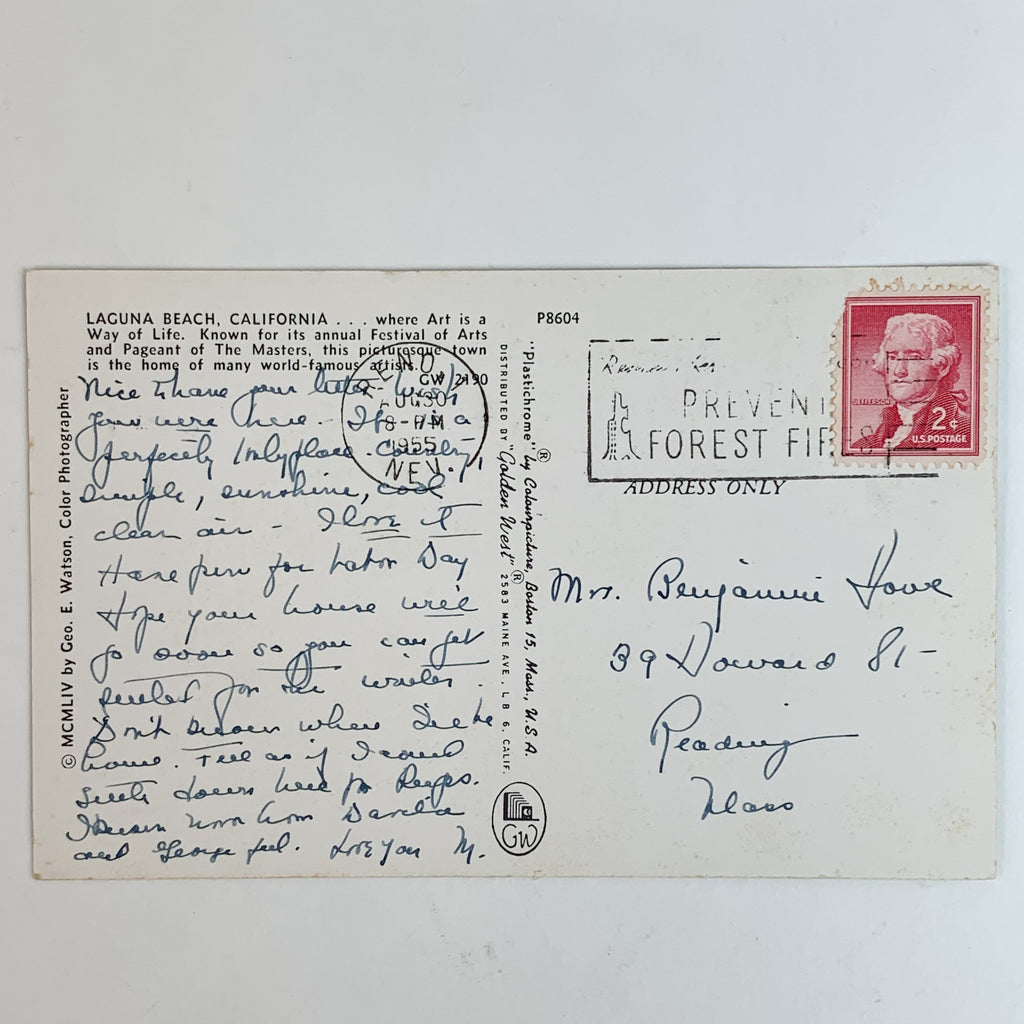 LAGUNA BEACH, CALIFORNIA . . . where Art is a
Way of Life. Known for its annual Festival of Arts
and Pageant of The Masters, this picturesque town
is the home of many world-famous artists.
GW 2190
Nice to have your letter - wish
you were here. It is a
perfectly lovely place. Country,
simple, sunshine, cool
clear air - I love it
Have fun for Labor Day
Hope your house will
go soon so you can get
settled for the winter.
Don't know when I'll be
home. Feel as if I could
settle down here for keeps.
I know now how
and George feel. Love you M.
© MCMLIV by Geo. E. Watson, Color Photographer
"Plastichrome" ® by Colourpicture, Boston 15, Mass., U.S.A.
DISTRIBUTED BY "Golden West" ® 2583 MAINE AVE. L B 6, CALIF.
GW
P8604
RENO,
AUG 30
8-PM
1955
NEV.
PREVENT
FOREST FIRES
JEFFERSON
2¢
U.S. POSTAGE
ADDRESS ONLY
Mrs. Benjamin Howe
39 Howard St -
Reading
Mass